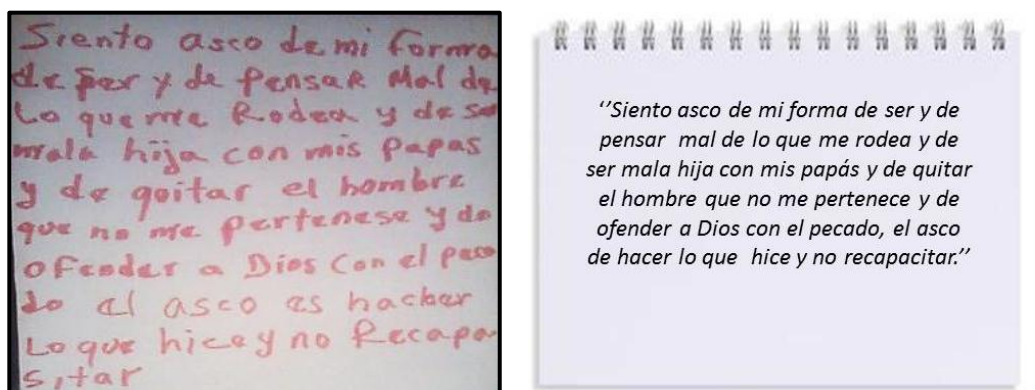 Siento asco de mi forma
de ser y de pensar Mal de
Lo que me Rodea y de se
mala hija con mis papas
y de qoitar el hombre
que no me pertenese y de
ofender a Dios con el peca
do el asco es hacher
Lo que hice y no Recapa
sitar
‘’Siento asco de mi forma de ser y de
pensar mal de lo que me rodea y de
ser mala hija con mis papás y de quitar
el hombre que no me pertenece y de
ofender a Dios con el pecado, el asco
de hacer lo que hice y no recapacitar.’’